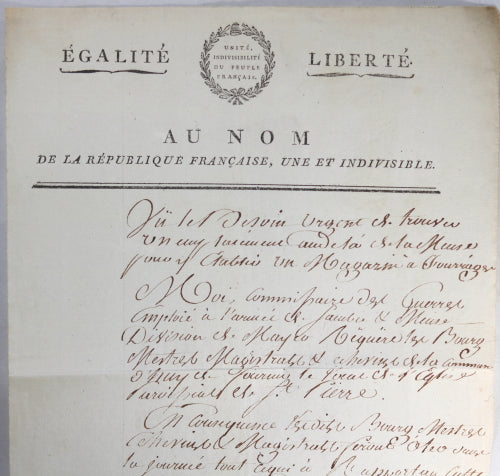 ÉGALITÉ
UNITÉ,
INDIVISIBILITÉ
DU PEUPLE
FRANÇAIS.
LIBERTÉ.
AU NOM
DE LA RÉPUBLIQUE FRANÇAISE, UNE ET INDIVISIBLE.
Vû les Besoin Urgent de trouver
un emplacement audela de la Meuse
pour y Etablir un Magazin a fourrages
Moi, Commissaire des Guerres
emploié à l'armée de Sambre & Meuse
Division de Requière les Bourg
Mestres Magistrats & echevins de la Commune
de fournir le local de l'Eglise
paroissiale de St. Pierre.
En Consequence lesdits Bourg Mestres
Echevins & Magistrats feront oter dans
la journée tout ce qui a